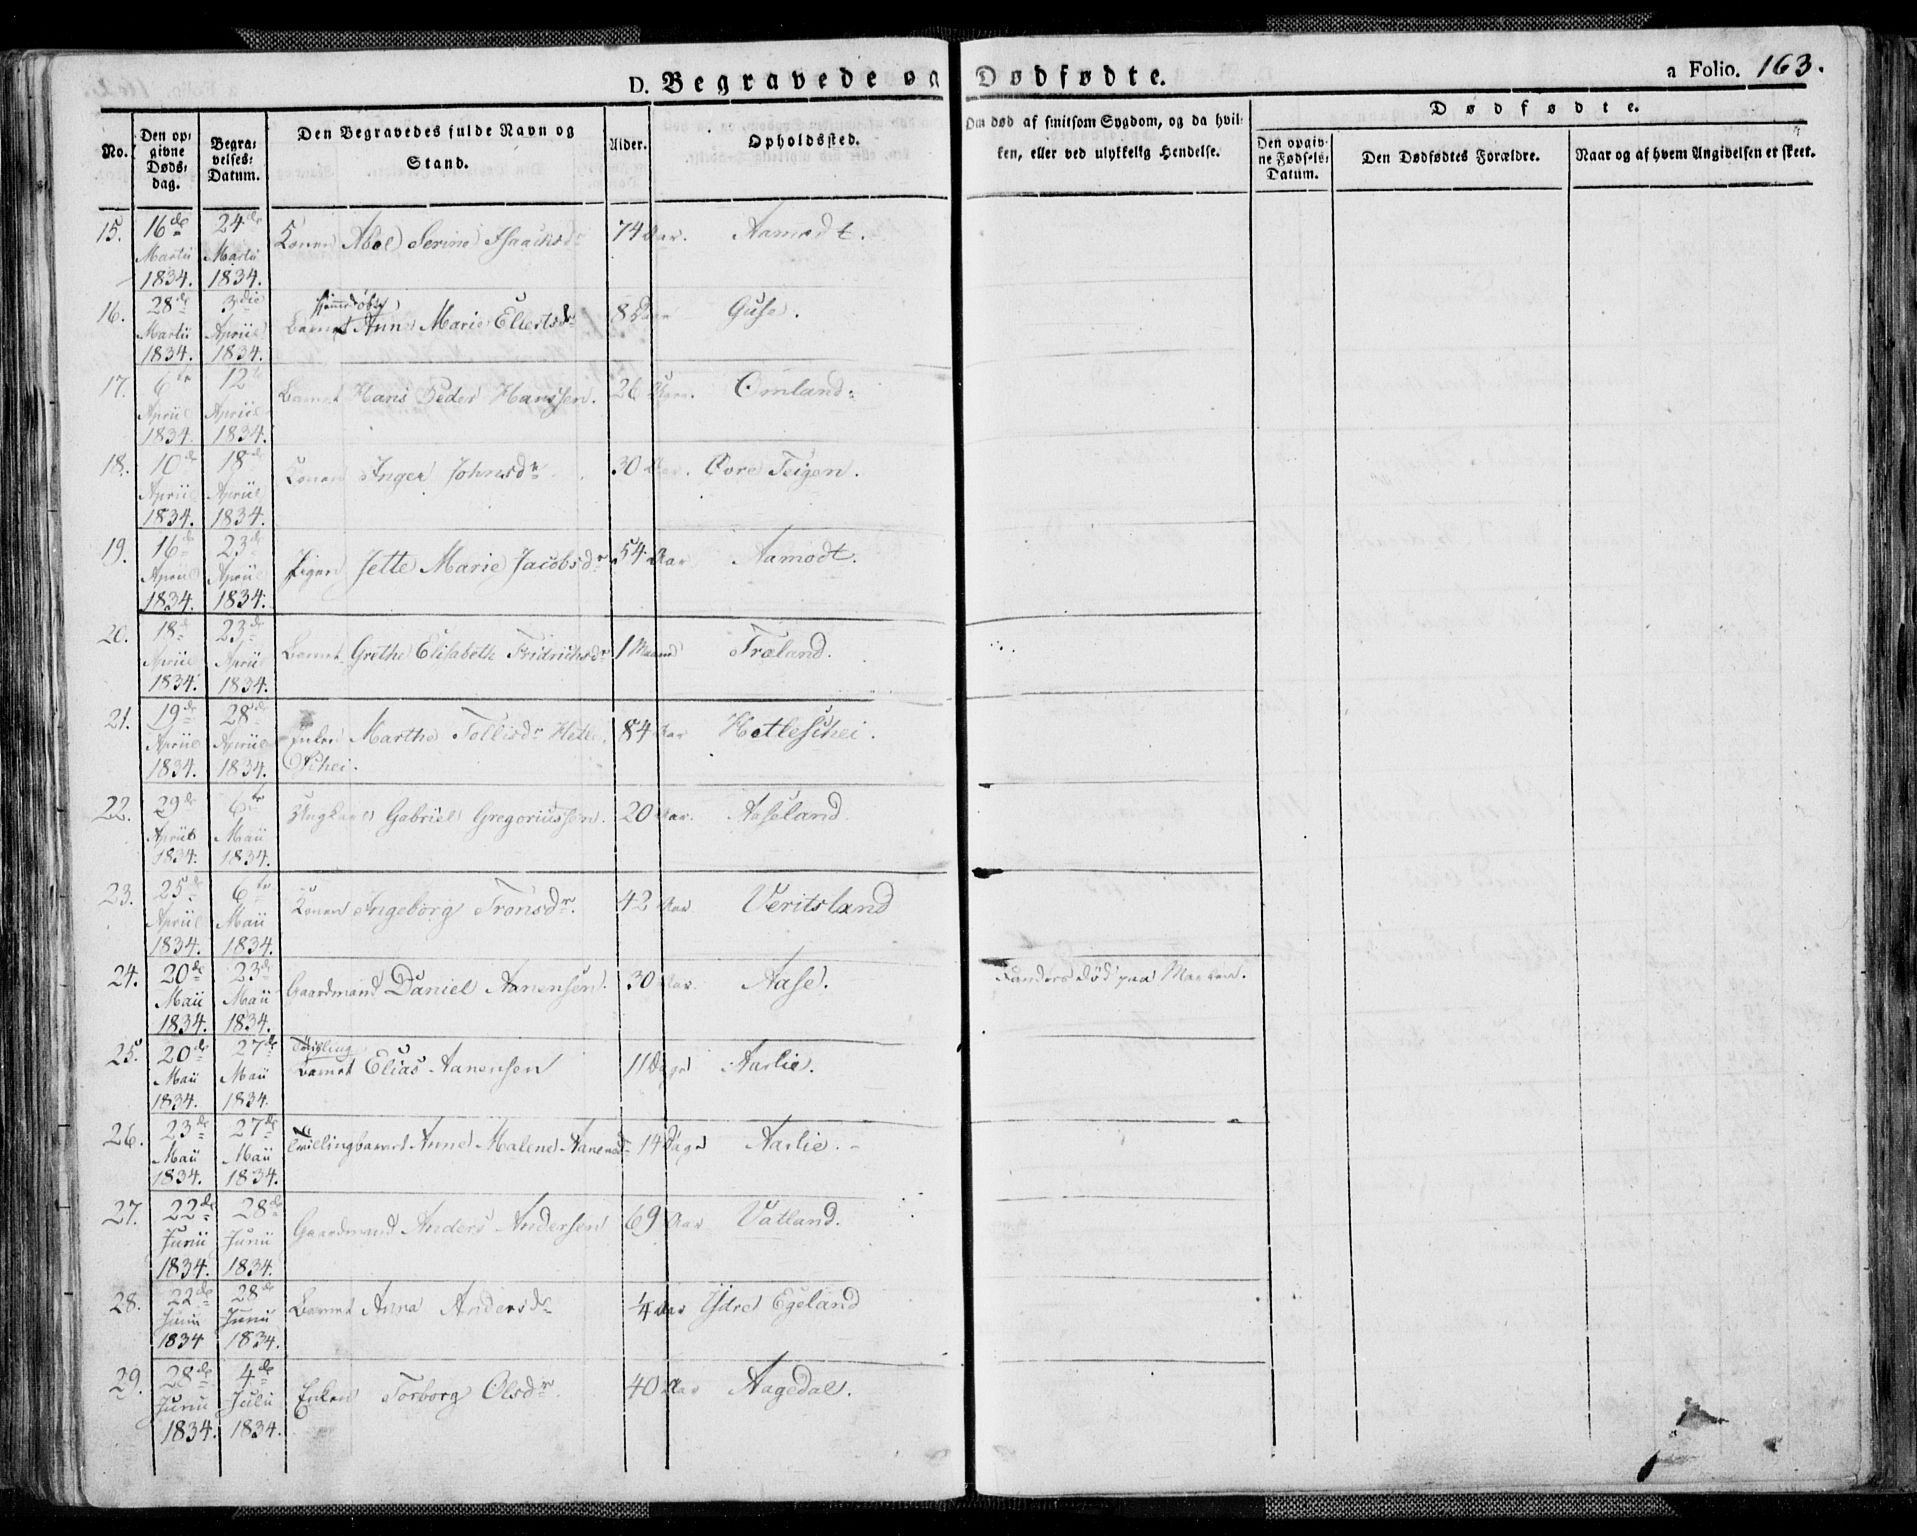 D. Begravede og Dødfødte.
a Folio. 163.
No.
Den opgivne Dødsdag.
Begravelses-Datum.
Den Begravedes fulde Navn og Stand.
Alder.
Opholdssted.
Om død af smitsom Sygdom, og da hvilken, eller ved ulykkelig Hendelse.
Dødfødte.
Den opgivne Fødsels-Datum.
Den Dødfødtes Forældre.
Naar og af hvem Angivelsen er skeet.
15. 16de Martii 1834. 24de Martii 1834. Konen Abol Serine Isaachsdr 74 Aar. Aamodt.
16. 28de Martii 1834. 3die Apriil 1834. Hjemmedøbt Barnet Anne Marie Elertsdr 8 Guse.
17. 6te Apriil 1834. 12te Apriil 1834. Barnet Hans Peder Hanssen. 26 Omland.
18. 10de Apriil 1834. 18de Apriil 1834. Konen Inger Johnsdr 30 Aar. Øvre Teigen.
19. 16de Apriil 1834. 23de Apriil 1834. Pigen Jette Marie Jacobsdr 54 Aar Aamodt.
20. 18de Apriil 1834. 23de Apriil 1834. Barnet Grethe Elisabeth Fridrichsdr 1 Maaned Træland.
21. 19de Apriil 1834. 28de Apriil 1834. Enken Marthe Tollisdr Hetle
Schei. 84 Aar Hetleschei.
22. 29de Apriil 1834. 6te Maii 1834. Ungkarl Gabriel Gregoriussen. 20 Aar. Aaseland.
23. 25de Apriil 1834. 6te Maii 1834. Konen Ingeborg Tronsdr. 42 Aar Veritsland
24. 20de Maii 1834. 23de Maii 1834. Gaardmand Daniel Aanensen. 30 Aar. Aase. Fandes død paa Marken.
25. 20de Maii 1834. 27de Maii 1834. Tvilling Barnet Elias Aanensen 11 Dage Aaslie.
26. 23de Maii 1834. 27de Maii 1834. Tvillingbarnet Anne Malene Aanensd 14 Dage Aaslie.
27. 22de Junii 1834. 28de Junii 1834. Gaardmand Anders Andersen 69 Aar Vatland.
28. 22de Junii 1834 28de Junii 1834. Barnet Anna Andersdr 1/4 Aar Ydre Egeland
29. 28de Junii 1834. 4de Julii 1834. Enken Torborg Olsdr. 40 Aar Aagedal.